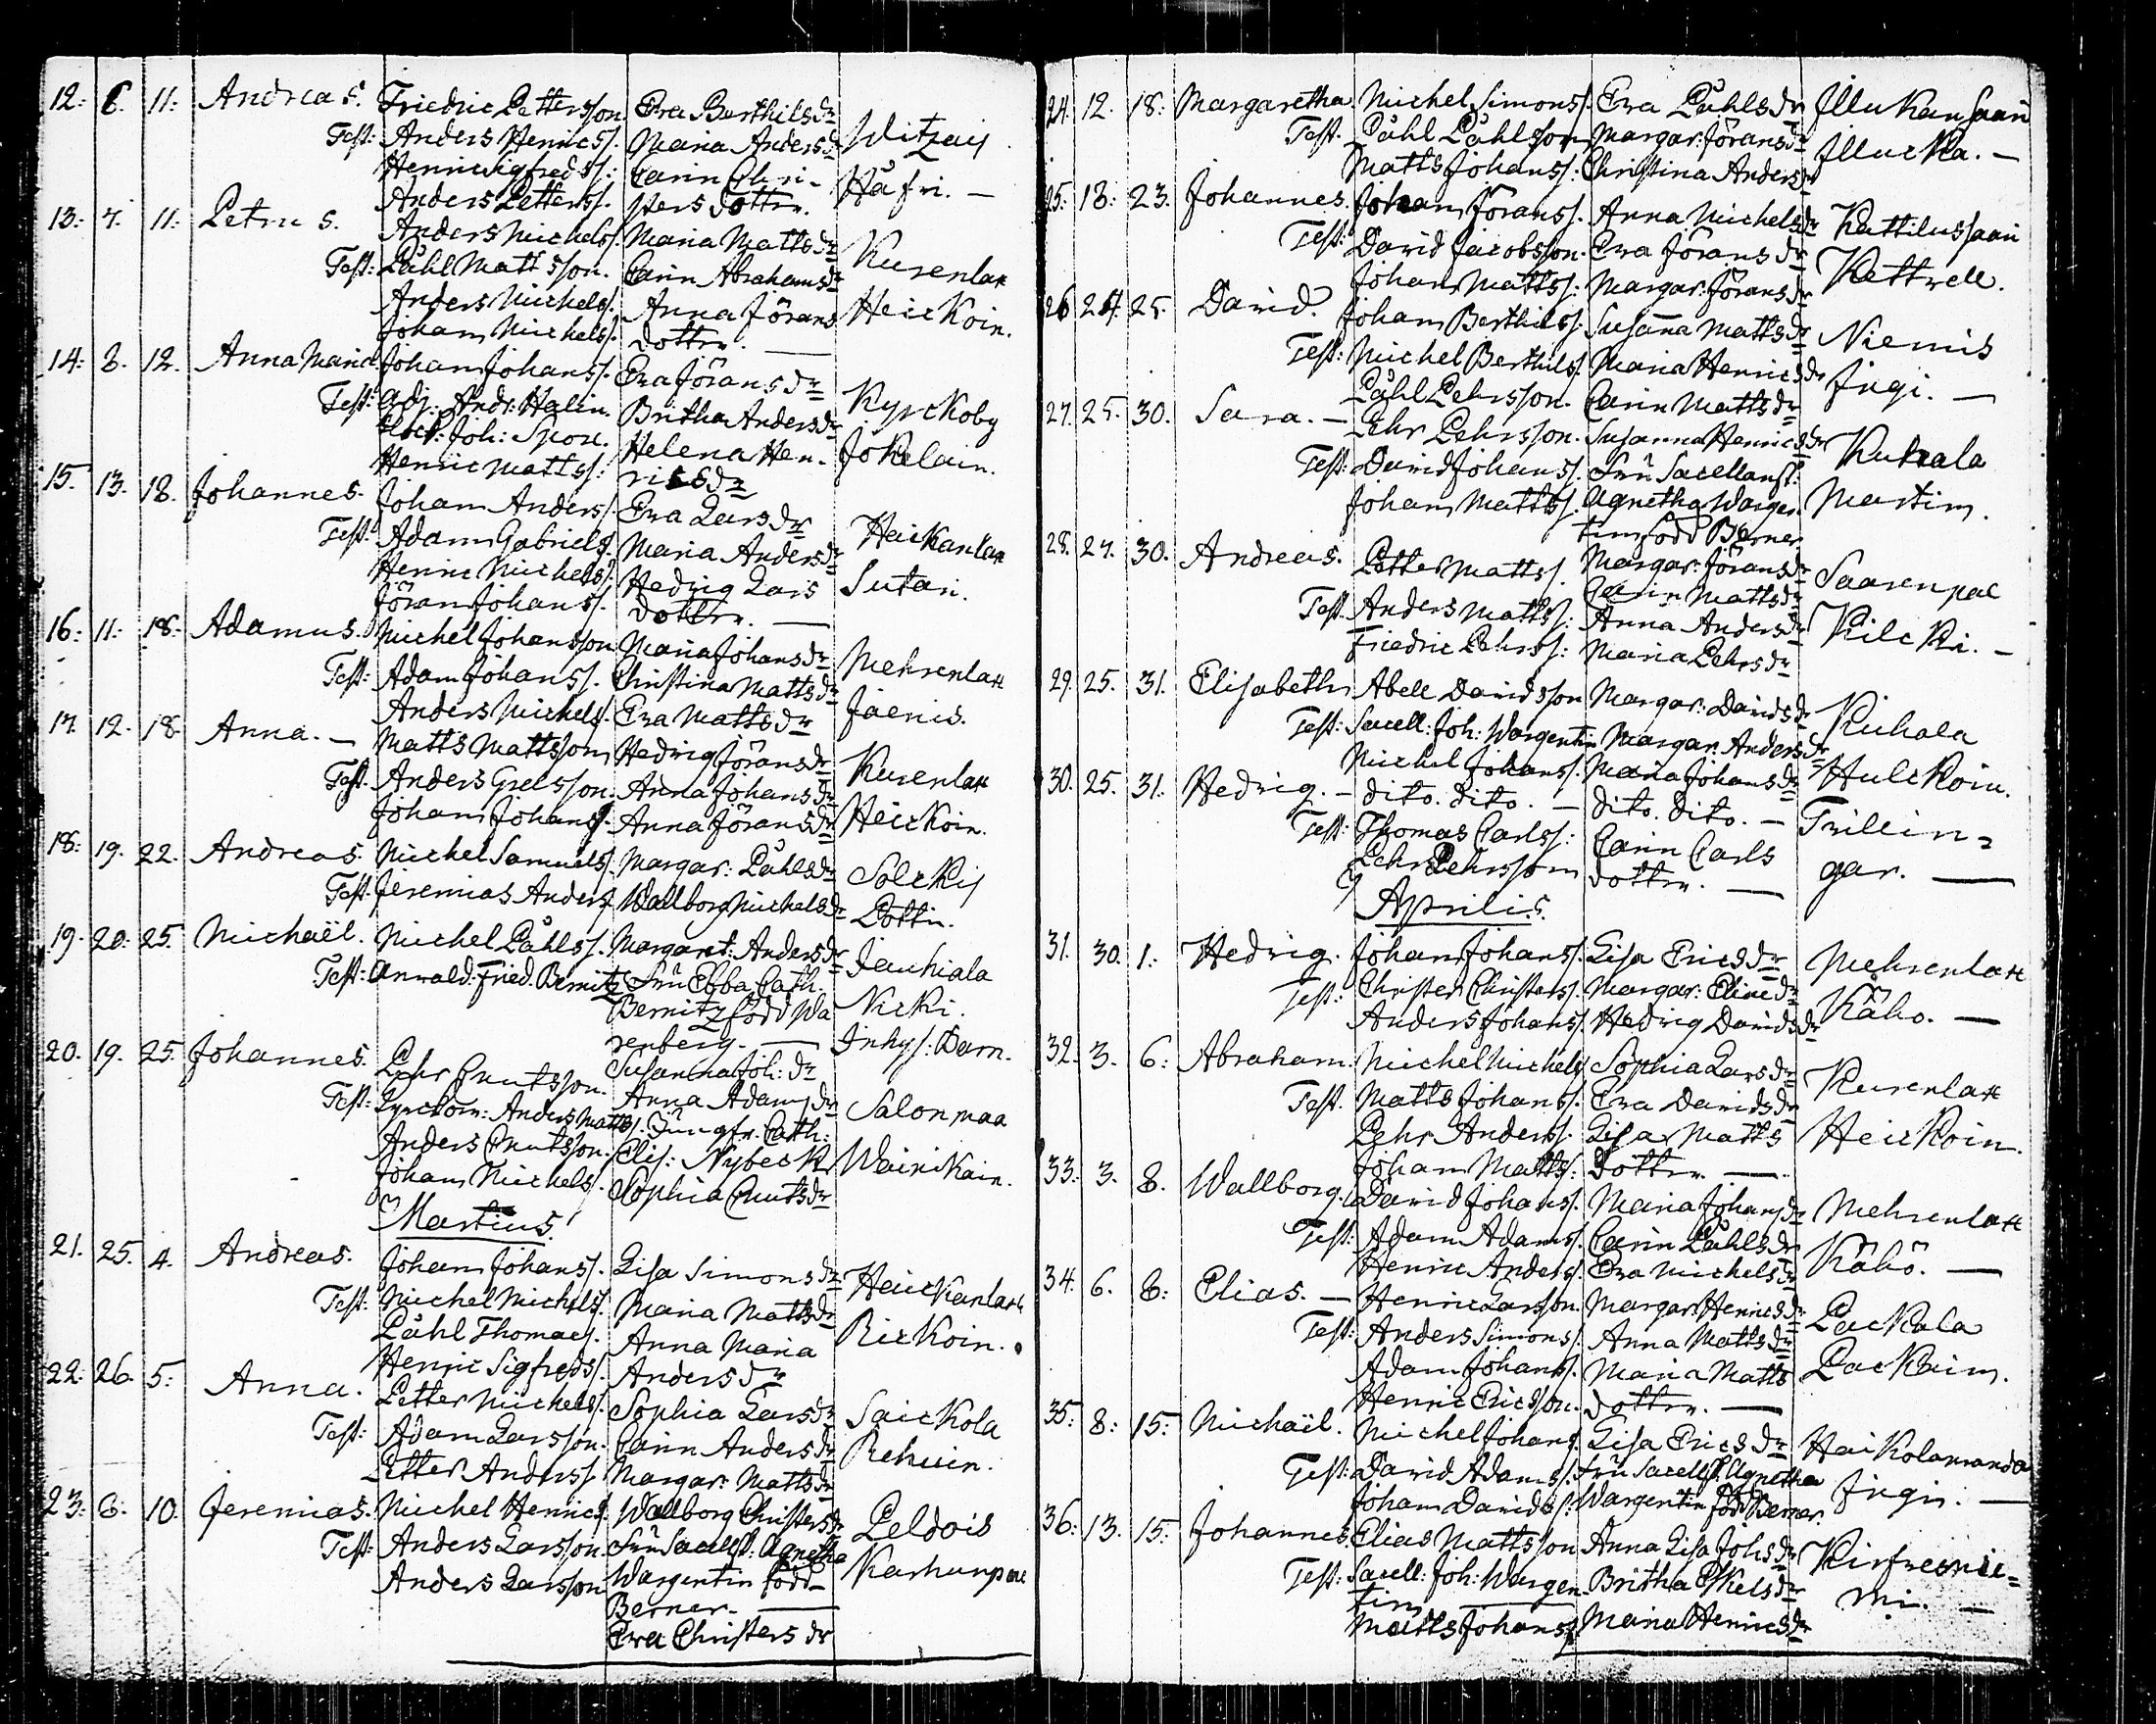 12: 6. 11: Andreas. Friedric Pettersson Eva Berthilsdr
Test: Anders Henricss. Maria Andersdr Witzaij
Henric Sigfredss: Carin Chri- Häfri. —
Anders Petterss. sters dotter.
13: 7. 11: Petrus. Anders Michelss. Maria Mattsdr
Test: Påhl Mattsson. Carin Abrahamsdr Kurenlax
Anders Michelss. Anna Jörans Heickoin.
Johan Michelss. dotter. —
14: 8. 12. Anna Maria Johan Johanss. Eva Jöransdr
Test: Adj: Andr: Halin. Britha Andersdr Kyrckoby
Joh: Spox. Helena Hen- Jokelain.
Henric Mattss: ricsdr
15. 13. 18. Johannes. Johan Anderss. Eva Larsdr
Test: Adam Gabrielss. Maria Andersdr Haickanlax
Henric Michelss: Hedvig Lars Sutari.
Jöran Johanss. dotter. —
16: 11: 18: Adamus. Michel Johansson Maria Johansdr
Test: Adam Johanss. Christina Mattsdr Mehrenlax
Anders Michelss. Eva Mattsdr Jaenis.
17. 12. 18. Anna. — Matts Mattsson Hedvig Jöransdr
Test. Anders Grelsson. Anna Johansdr Kurenlax
Johan Johanss. Anna Jöransdr Heickoin.
18: 19. 22. Andreas. Michel Samuelss. Margar: Påhlsdr Solckij
Test: Jeremias Anderss. Wallborg Michelsdr Pottin.
19. 20. 25. Michaël. Michel Påhlss. Margaret: Andersdr Jauhiala
Test: Anvald: Fried. Bernitz Fru Ebba Cath. Nicki.
Bernitz född Wa
renberg. — Inhys: Barn.
20. 19. 25. Johannes. Pehr Cnutsson. Susanna Joh: dr
Test: Kyrckov: Anders Matts. Anna Adamsdr Salonmaa
Anders Cnutsson. Jungfr. Cath: Elis: Nybeck Wainikain.
Johan Michelss. Sophia Cnutsdr
Martius.
21. 25. 4. Andreas. Johan Johanss. Lisa Simonsdr
Test: Michel Michelss. Maria Mattsdr Haickanlax
Påhl Thomass. Anna Maria Rickoin.
Henric Sigfredss. Andersdr
22: 26. 5: Anna. Petter Michelss. Sophia Larsdr Saickola
Test: Adam Larsson. Carin Andersdr Rehuin.
Petter Anderss. Margar: Mattsdr
23: 6: 10. Jeremias. Michel Henricss. Wallborg Christersdr Peldois
Test: Anders Larsson. Fru Sacellsk: Agnetha Karhunpae
Anders Larsson Wargentin född
Berner. —
Eva Christers dr
24. 12. 18: Margaretha. Michel Simonss. Eva Påhlsdr Illukansaari
Test. Påhl Påhlsson Margar: Jöransdr Illucka. —
Matts Johanss: Christina Andersdr
25: 18: 23. Johannes. Johan Jöranss. Anna Michelsdr Kattilussaari
Test: David Jacobsson. Eva Jöransdr Kettrell.
Johan Mattss: Margar: Jöransdr
26 24. 25. David. Johan Berthilss: Susanna Mattsdr Niemis
Test: Michel Berthilss. Maria Henricsdr Jngi. —
Påhl Pehrsson. Carin Mattsdr
27. 25. 30. Sara. — Pehr Pehrsson. Susanna Henricsdr Kukala
Test: David Johanss. Fru Sacellansk: Martin.
Johan Mattss. Agnetha Wargen
tin född Berner
28. 27. 30. Andreas. Petter Mattss. Margar: Jöransdr Saarenpae
Test. Anders Mattss: Carin Mattsdr Kilcki. —
Friedric Pehrss: Anna Andersdr
Maria Pehrsdr
29. 25. 31. Elisabeth Abell Davidsson Margar: Davidsdr Kuhala
Test: Sacell: Joh: Wargentin Margar: Andersdr Hulckoin.
Michel Johanss. Maria Johansdr
30. 25. 31. Hedvig. — dito. dito. — dito. dito. — Trillin=
Test: Thomas Carlss: Carin Carls gar. —
Pehr Pehrsson dotter. —
Aprilis.
31. 30. 1: Hedvig. Johan Johanss. Lisa Ericsdr Mehrenlax
Test: Christer Christerss. Margar: Elinedr Käho. —
Anders Johanss. Hedvig Davidsdr
32. 3. 6: Abraham. Michel Michelss Sophia Larsdr Kurenlax
Test. Matts Johanss. Eva Davidsdr Heickoin.
Pehr Anderss. Lisa Matts
Johan Mattss: dotter. —
33: 3. 8. Wallborg. David Johanss. Maria Johansdr Mehrenlax
Test: Adam Adamss. Carin Påhlsdr Kähö. —
Henric Anderss. Eva Michelsdr
34. 6. 8: Elias. — Henric Larsson. Margar: Henricsdr Packala
Test: Anders Simonss. Anna Mattsdr Packain.
Adam Johanss. Maria Matts
Henric Ericsson. dotter. —
35: 8: 15: Michaël. Michel Johanss. Lisa Ericsdr Haikolamanda
Test: David Adamss. Fru Sacellsk: Agnetha Jngin. —
Johan Davidss: Wargentin född Berner.
36: 13. 15: Johannes. Elias Mattsson Anna Lisa Johsdr Kirfvesnie=
Test: Sacell: Joh: Wargen- Britha Eskelsdr mi. —
tin —
Matts Johanss. Maria Henricsdr